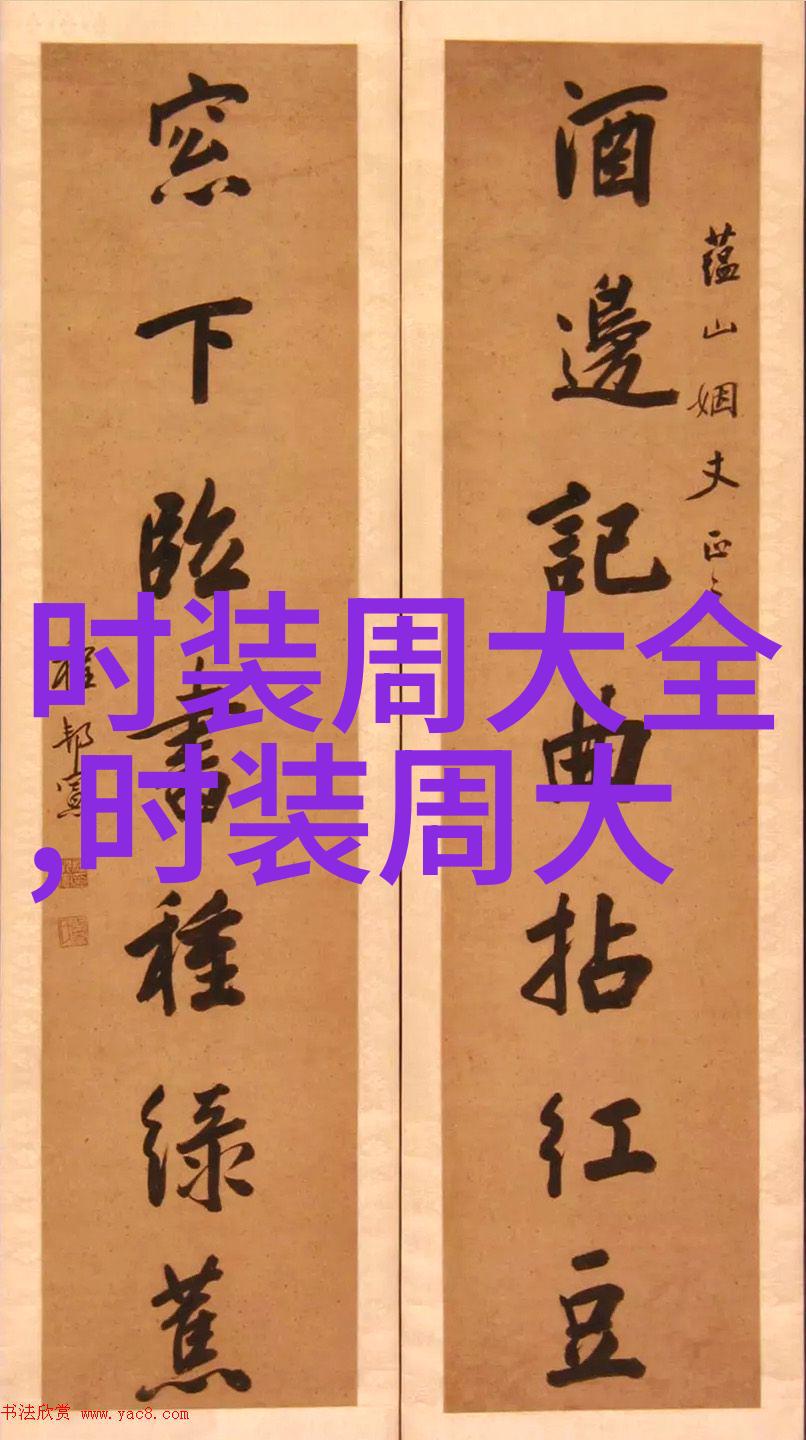 酒邊記曲拈紅豆
蘊山姻丈正之
窓下臨書種綠蕉
程邦憲
时装周大全
,时装周大
书法欣赏 www.yac8.com